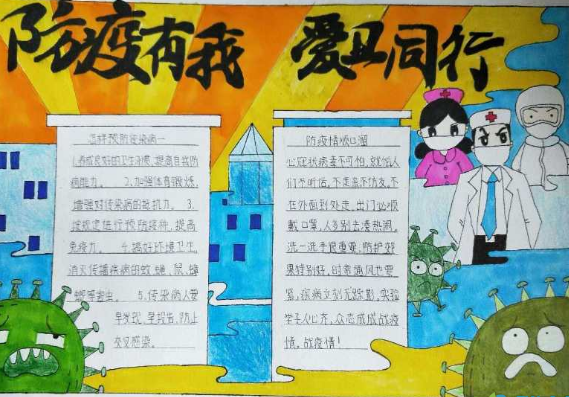 防疫有我 爱卫同行
怎样预防传染病一
1.养成良好的卫生习惯,提高自我防
病能力。 2.加强体育锻炼,
增强对传染病的抵抗力。 3.
按规定进行预防接种,提高
免疫力。 4.搞好环境卫生,
消灭传播疾病的蚊、蝇、鼠、蟑
螂等害虫。 5.传染病人要
早发现,早报告,防止
交叉感染。
防疫情顺口溜
心冠状病毒不可怕,就怕人
们不听话,不走亲不访友,不
在外面到处走,出门必须
戴口罩,人多别去凑热闹,
洗一洗手很重要,防护效
果特别好,时常通风也要
紧,疾病立刻无踪影,实验
学子人心齐,众志成城战疫
情。战疫情!